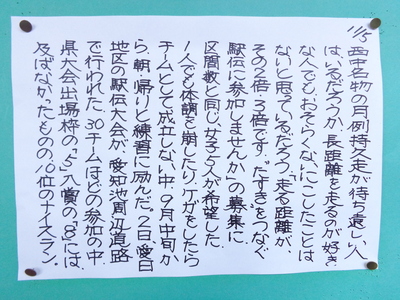 11/5
西中名物の月例持久走が待ち遠しい人
はいるだろうか、長距離を走るのが好き
な人でも、おそらくないにこしたことは
ないと思っているだろう。走る距離が、
その2倍・3倍です。「たすきをつなぐ
駅伝に参加しませんか」の募集に、
区間数と同じ女子5人が希望した。
1人でも体調を崩したりケガをしたら
チームとして成立しない中、9月中旬か
ら、朝・帰りと練習に励んだ。2日、愛日
地区の駅伝大会が、愛知池周辺道路
で行われた。30チームほどの参加の中、
県大会出場枠の「5」、入賞の「8」には、
及ばなかったものの、10位のナイスラン。